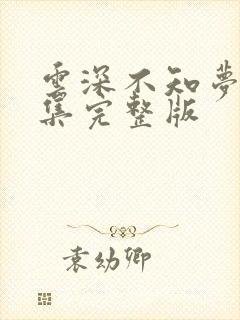 云深不知夢
集完整版
袁幼卿